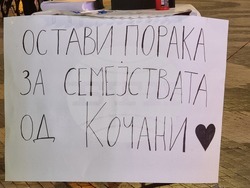 ОСТАВИ ПОРАКА
ЗА СЕМЕЈСТВАТА
ОД КОЧАНИ ♥